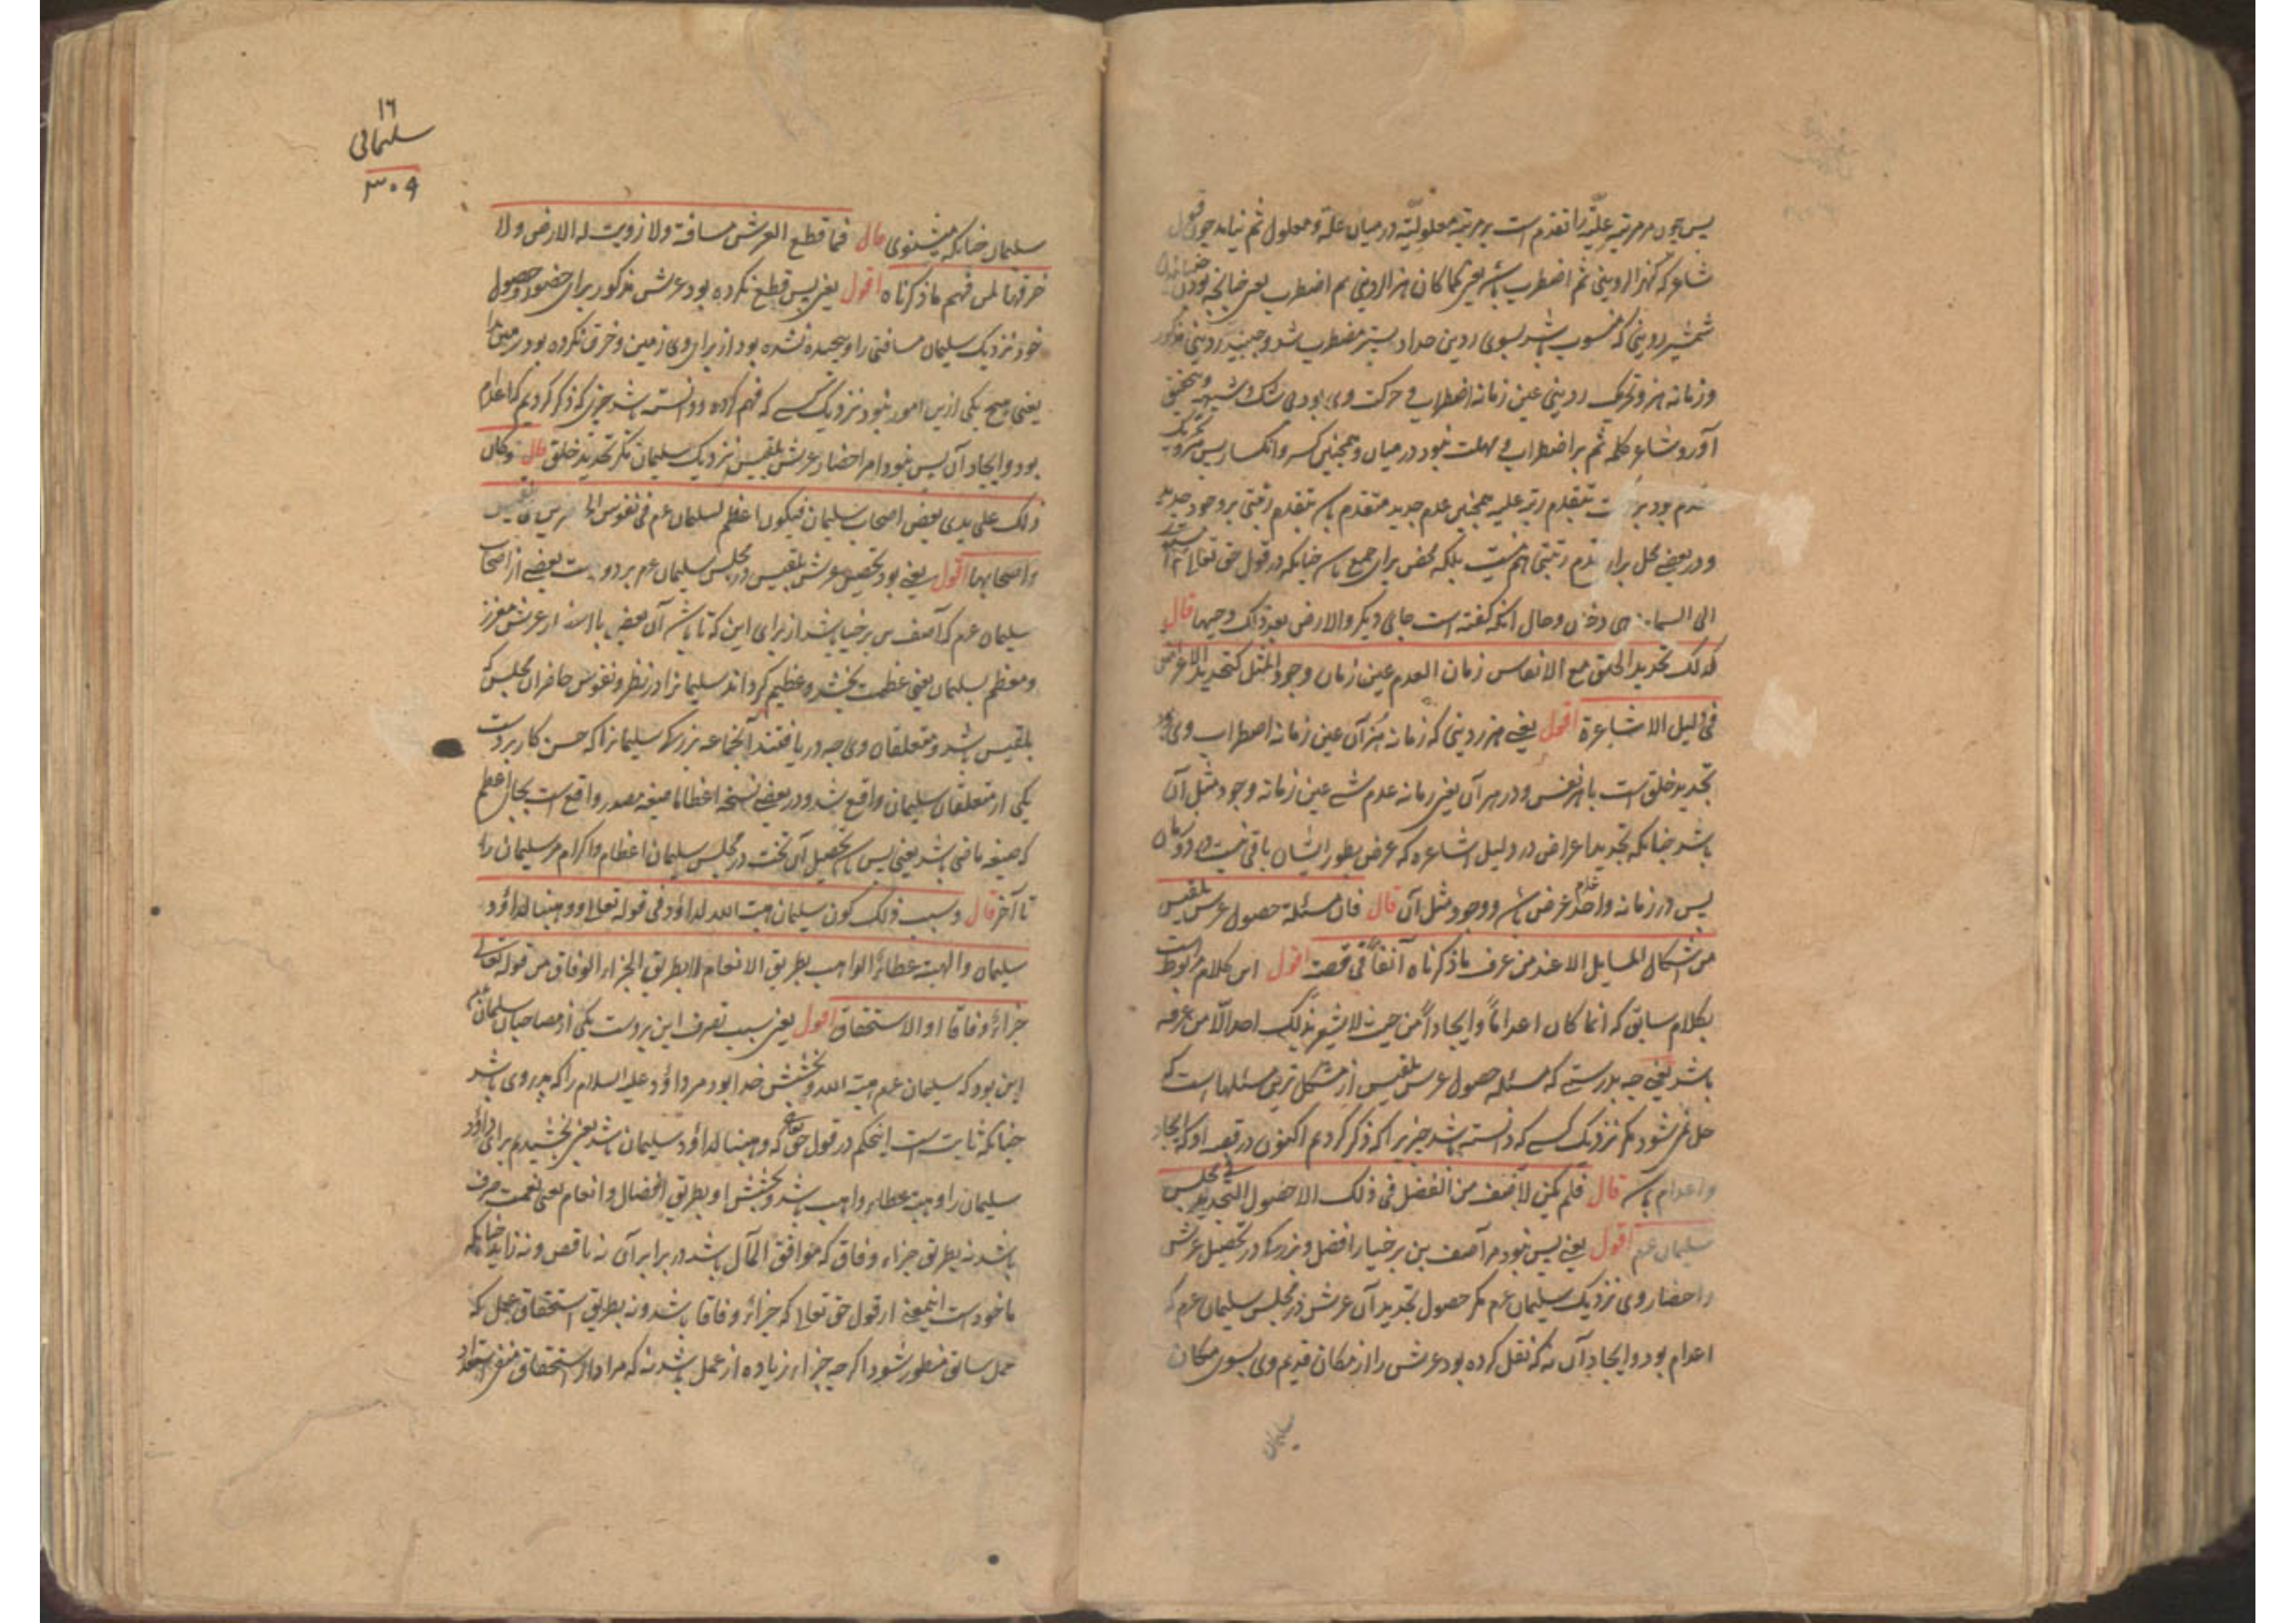 پس چون مر مرتبه علیّة را تقدم است بر مرتبه معلولیّة در میان علّة و معلول ثم نیاید چون قول
شاعر که کهز الردینی ثم اضطرب باشد یعنی کما کان هز الردینی ثم اضطرب یعنی چنانچه بود
ردینی که منسوب باشد بسوی ردین حداد پستر مضطرب شد و جنبید ردینی مذکور
و زمانه هز و تحریک ردینی عین زمانه اضطراب و حرکت وی بود بی شک و شبهه و بتحقیق
آورد شاعر کلمه ثم بر اضطراب و مهلت نبود در میان و همچنین کسر و انکسار پس
بود بر بتقدم رتبه علیه همچنین عدم جدید متقدم باشد بتقدم رتبتی بر وجود جدید
و در بعضی محل برای تقدم رتبتی هم نیست بلکه محض برای جمع باشد چنانکه در قول حق تعالی ثم استوی
الی السماء و هی دخان و حال آنکه گفته است جای دیگر و الارض بعد ذلک دحیها قال
کذلک تجدید الخلق مع الانفاس زمان العدم عین زمان وجود المثل کتجدید الاعراض
فی دلیل الاشاعرة اقول یعنی هز ردینی که زمانه هز آن عین زمانه اضطراب وی
تجدید خلق است با هر نفس و در هر آن یعنی زمانه عدم شے عین زمانه وجود مثل آن
باشد چنانکه تجدید اعراض در دلیل اشاعره که عرض بطور ایشان باقی نیست در دو زمان
پس در زمانه واحد عدم عرض باشد و وجود مثل آن قال فان مسئلة حصول عرش بلقیس
من اشکال المسایل الا عند من عرف ما ذکرناه آنفاً فی قصته اقول این کلام مربوط است
بکلام سابق که انما کان اعداماً و ایجاداً من حیث لا یشعر بذلک احد الّا من عرفه
باشد یعنی چه بدرستے که مسئله حصول عرش بلقیس از مشکل ترین مسئلها است که
حل نمی شود مگر نزدیک کسے که دانسته باشد چیزیرا که ذکر کردیم اکنون در قصه او که ایجاد
و اعدام باشد قال فلم یکن لآصف من الفضل فی ذلک الا حصول التجدید فی مجلس
سلیمان عم اقول یعنی پس نبود مر آصف بن برخیا را فضل و بزرگی در تحصیل عرش
و احضار وی نزدیک سلیمان عم مگر حصول تجدید آن عرش در مجلس سلیمان عم که
اعدام بود و ایجاد آن نه که نقل کرده بود عرش را از مکان قدیم وی بسوی مکان
سلیمان
١٦
سلیمانی
٣٠٩
سلیمان چنانکه میشنوی قال فما قطع العرش مسافة ولا زویت له الارض ولا
خرقها لمن فهم ما ذکرناه اقول یعنی پس قطع نکرده بود عرش مذکور برای حضور و حصول
خود نزدیک سلیمان مسافتی را و پیچیده نشده بود از برای وی زمین و خرق نکرده بود زمین را
یعنی هیچ یکی از این امور نبود نزدیک کسے که فهم کرده و دانسته باشد چیزیکه ذکر کردیم که اعدام
بود و ایجاد آن پس نبود امر احضار عرش بلقیس نزدیک سلیمان مگر تجدید خلق قال و کان
ذلک علی یدی بعض اصحاب سلیمان فیکون اعظم لسلیمان عم فی نفوس الحاضرین من بلقیس
و اصحابها اقول یعنی بود تحصیل عرش بلقیس در مجلس سلیمان عم بر دو دست بعضی از اصحاب
سلیمان عم که آصف بن برخیا باشد از برای این که تا باشد آن معزز
و معظم سلیمان یعنی عظمت بخشد و عظیم گرداند سلیمانرا در نظر و نفوس حاضران مجلس که
بلقیس باشد و متعلقان وی چه دریافتند آنجماعه بزرگی سلیمانرا که حسن کار بر دست
یکی از متعلقان سلیمان واقع شد و در بعضی نسخه اعظاما صیغه مصدر واقع است بجای اعظم
که صیغه ماضی باشد یعنی پس باشد تحصیل آن تخت در مجلس سلیمان اعظام و اکرام مر سلیمان را
تا آخر قال و سبب ذلک کون سلیمان هبت الله لداؤد فی قوله تعالی و وهبنا لداؤد
سلیمان و الهبة عطاء الواهب بطریق الانعام لا بطریق الجزاء الوفاق من قوله تعالی
جزاءً وفاقا او الاستحقاق اقول یعنی سبب تصرف این بر دست یکی از مصاحبان سلیمان عم
این بود که سلیمان عم هبة الله و بخشش خدا بود مر داؤد علیه السلام را که پدر وی باشد
چنانکه ثابت است اینحکم در قول حق تعالی که و وهبنا لداؤد سلیمان باشد یعنی بخشیدم برای داؤد
سلیمان را و هبه عطای واهب باشد و بخشش او بطریق افضال و انعام یعنی نعمت صرف
باشد نه بطریق جزاء وفاق که موافق اعمال باشد در برابر آن نه ناقص و نه زاید چنانکه
ماخوذ است اینمعنی از قول حق تعالی که جزاءً وفاقا باشد و نه بطریق استحقاق عمل که
عمل سابق منظور شود اگرچه جزاء زیاده از عمل باشد نه که مراد از استحقاق